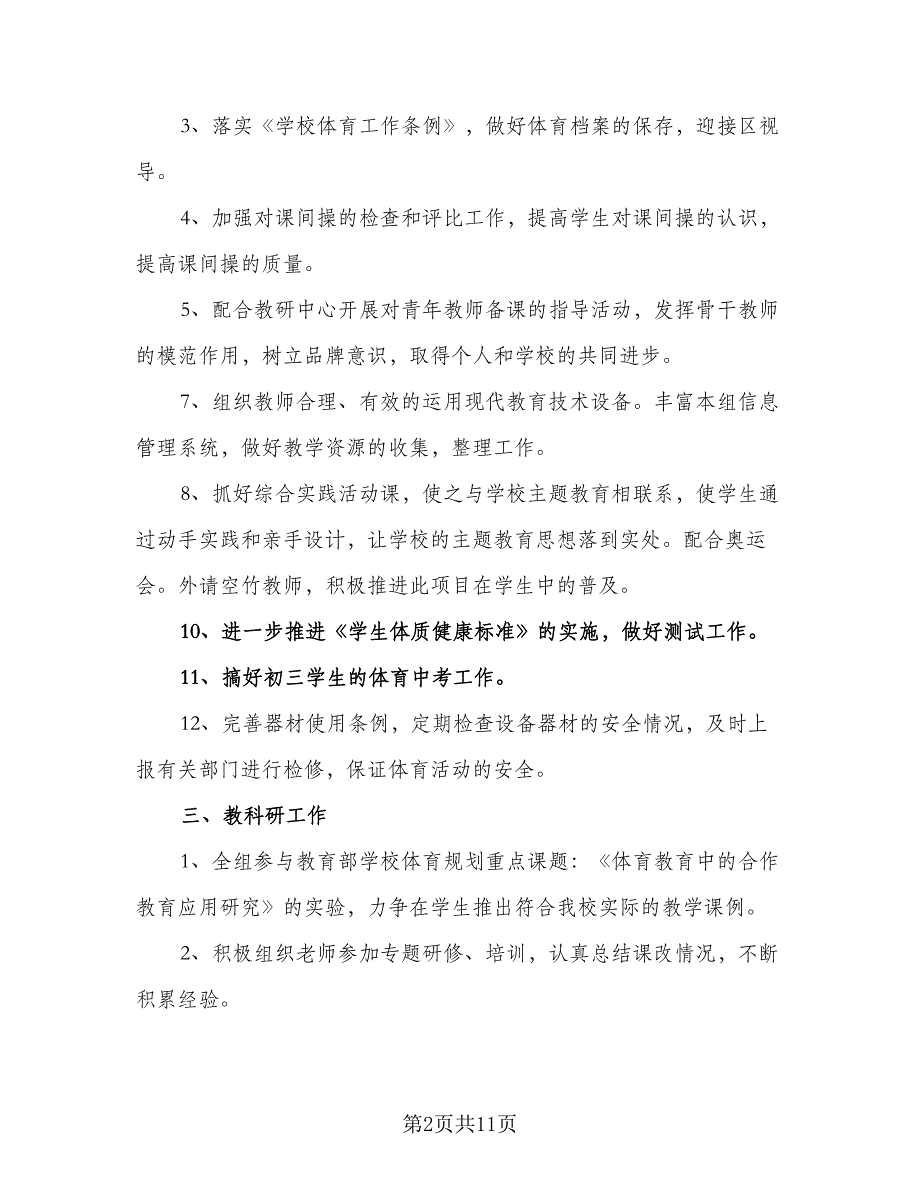 3、落实《学校体育工作条例》，做好体育档案的保存，迎接区视
导。
4、加强对课间操的检查和评比工作，提高学生对课间操的认识，
提高课间操的质量。
5、配合教研中心开展对青年教师备课的指导活动，发挥骨干教师
的模范作用，树立品牌意识，取得个人和学校的共同进步。
7、组织教师合理、有效的运用现代教育技术设备。丰富本组信息
管理系统，做好教学资源的收集，整理工作。
8、抓好综合实践活动课，使之与学校主题教育相联系，使学生通
过动手实践和亲手设计，让学校的主题教育思想落到实处。配合奥运
会。外请空竹教师，积极推进此项目在学生中的普及。
10、进一步推进《学生体质健康标准》的实施，做好测试工作。
11、搞好初三学生的体育中考工作。
12、完善器材使用条例，定期检查设备器材的安全情况，及时上
报有关部门进行检修，保证体育活动的安全。
三、教科研工作
1、全组参与教育部学校体育规划重点课题：《体育教育中的合作
教育应用研究》的实验，力争在学生推出符合我校实际的教学课例。
2、积极组织老师参加专题研修、培训，认真总结课改情况，不断
积累经验。
第2页共11页